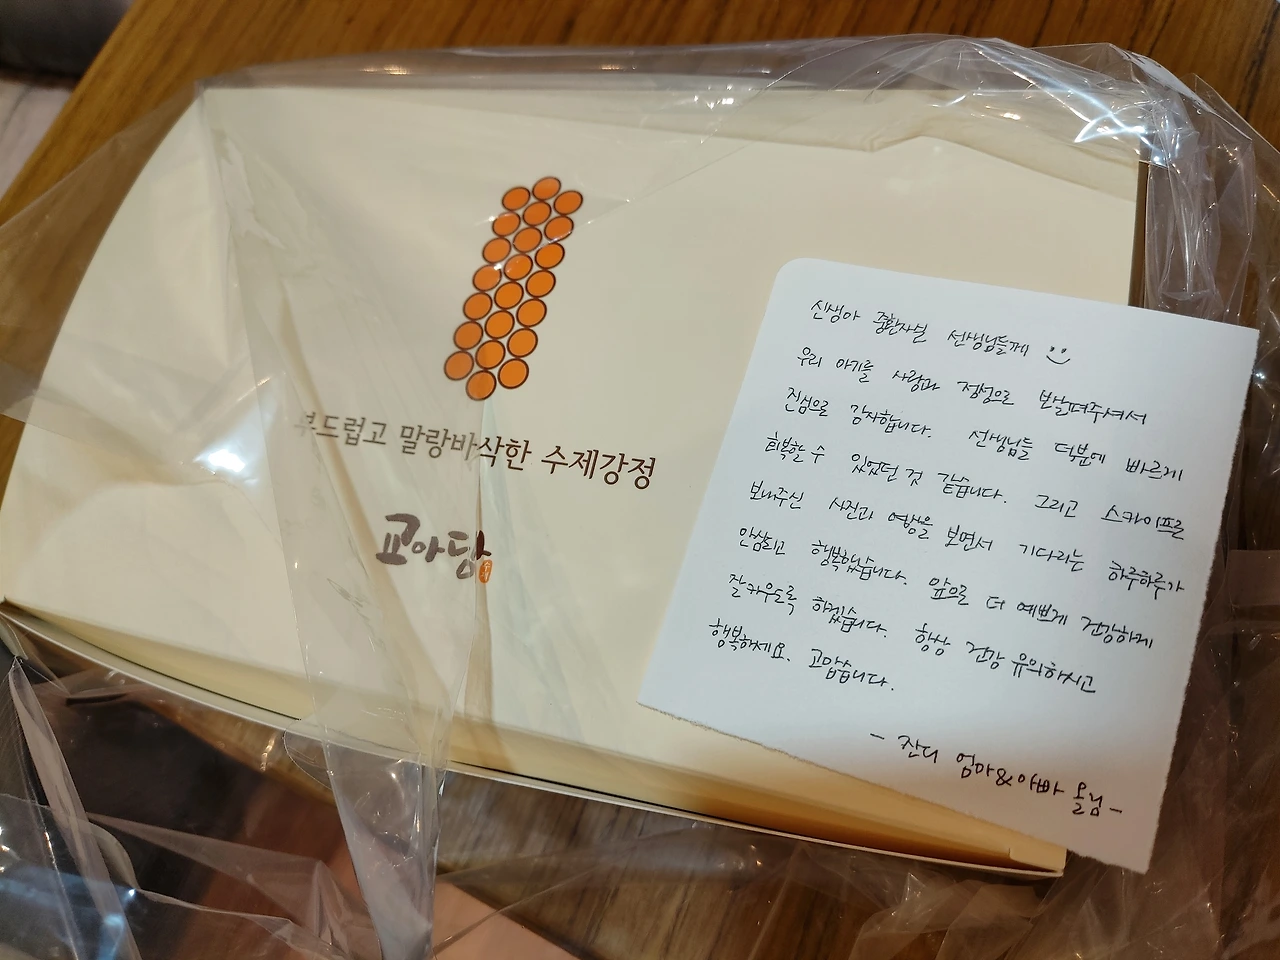 부드럽고 말랑바삭한 수제강정
교아당
신생아 중환자실 선생님들께
우리 아기를 사랑과 정성으로 보살펴주셔서
진심으로 감사합니다. 선생님들 덕분에 빠르게
회복할 수 있었던 것 같습니다. 그리고 스카이프로
보내주신 사진과 영상을 보면서 기다리는 하루하루가
안심되고 행복했습니다. 앞으로 더 예쁘게 건강하게
잘 키우도록 하겠습니다. 항상 건강 유의하시고
행복하세요. 고맙습니다.
- 잔디 엄마&아빠 올림 -